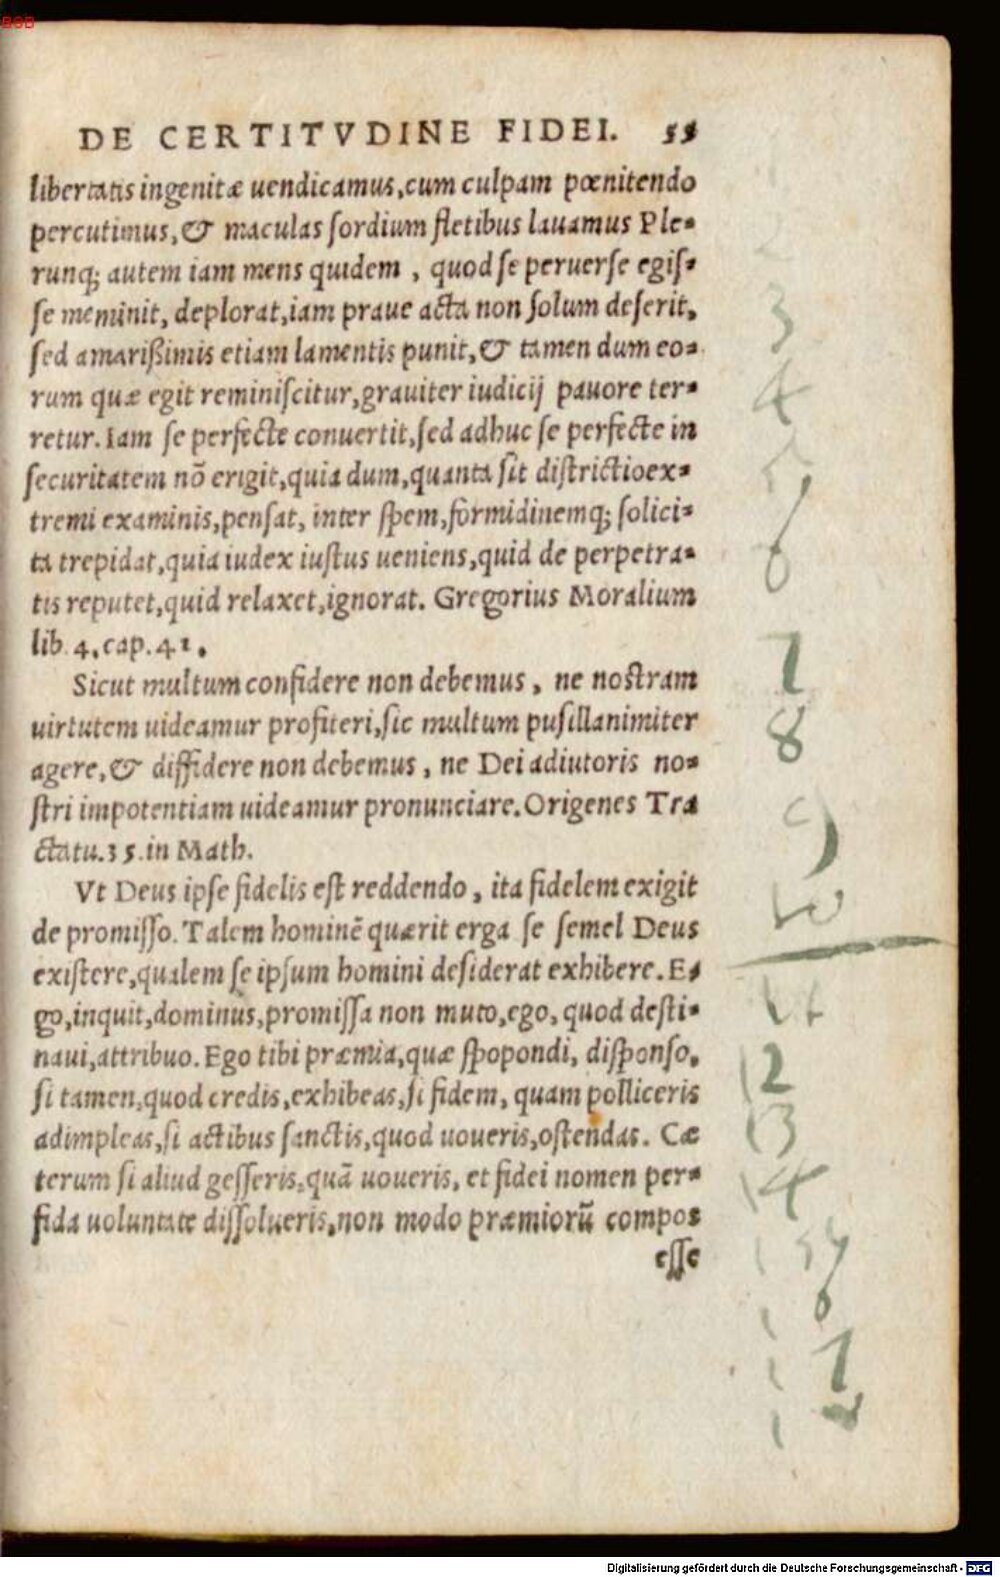 DE CERTITVDINE FIDEI. 55
libertatis ingenitæ uendicamus, cum culpam pœnitendo
percutimus, & maculas sordium fletibus lauamus Ple-
runq; autem iam mens quidem, quod se peruerse egis-
se meminit, deplorat, iam praue acta non solum deserit,
sed amarißimis etiam lamentis punit, & tamen dum eo-
rum quæ egit reminiscitur, grauiter iudicij pauore ter-
retur. Iam se perfecte conuertit, sed adhuc se perfecte in
securitatem nō erigit, quia dum, quanta sit districtioex-
tremi examinis, pensat, inter spem, formidinemq; solici-
ta trepidat, quia iudex iustus ueniens, quid de perpetra-
tis reputet, quid relaxet, ignorat. Gregorius Moralium
lib. 4. cap. 41.
Sicut multum confidere non debemus, ne nostram
uirtutem uideamur profiteri, sic multum pusillanimiter
agere, & diffidere non debemus, ne Dei adiutoris no-
stri impotentiam uideamur pronunciare. Origenes Tra
ctatu. 35. in Math.
Vt Deus ipse fidelis est reddendo, ita fidelem exigit
de promisso. Talem hominē quærit erga se semel Deus
existere, qualem se ipsum homini desiderat exhibere. E-
go, inquit, dominus, promissa non muto, ego, quod desti-
naui, attribuo. Ego tibi præmia, quæ spopondi, dispōnso,
si tamen, quod credis, exhibeas, si fidem, quam polliceris
adimpleas, si actibus sanctis, quod uoueris, ostendas. Cæ
terum si aliud gesseris, quā uoueris, et fidei nomen per-
fida uoluntate dissolueris, non modo præmiorū compos
esse
2
3
4
5
6
7
8
9
10
11
12
13
14
15
6
7
Digitalisierung gefördert durch die Deutsche Forschungsgemeinschaft - DFG
BSB